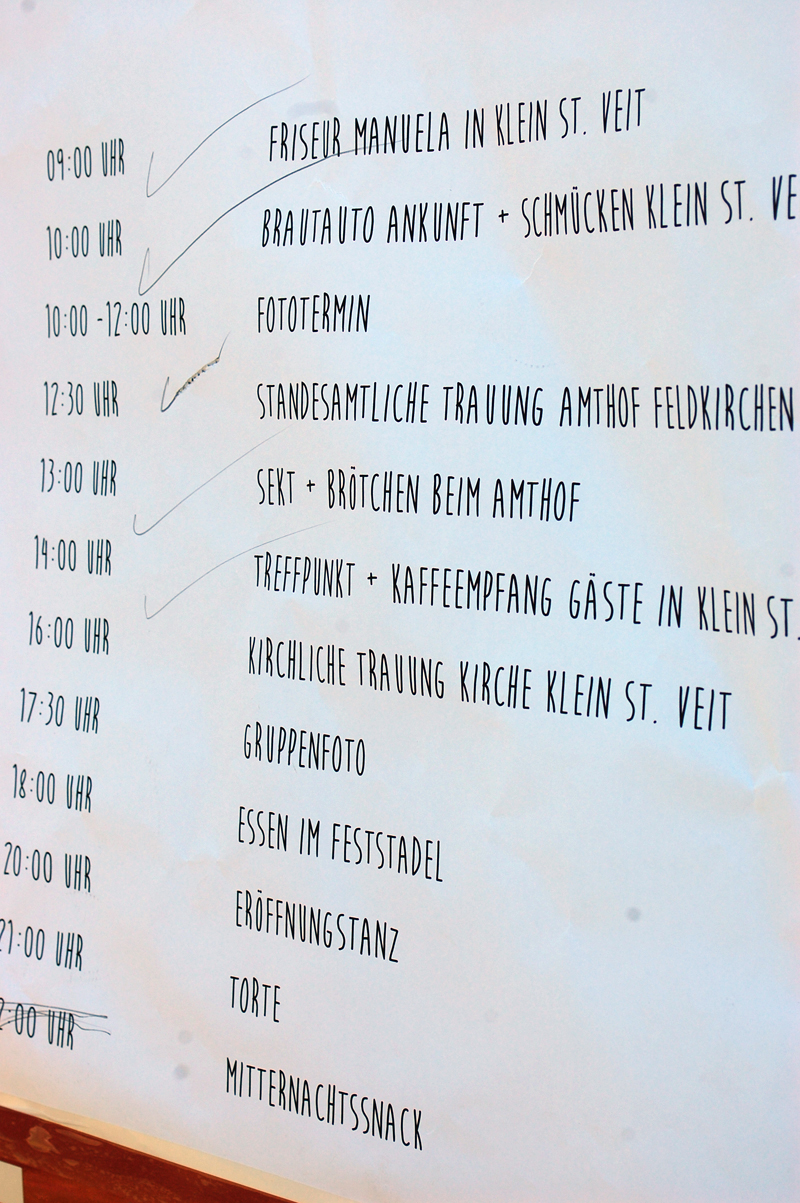 09:00 UHR FRISEUR MANUELA IN KLEIN ST. VEIT
10:00 UHR BRAUTAUTO ANKUNFT + SCHMÜCKEN KLEIN ST. VE
10:00 -12:00 UHR FOTOTERMIN
12:30 UHR STANDESAMTLICHE TRAUUNG AMTHOF FELDKIRCHEN
13:00 UHR SEKT + BRÖTCHEN BEIM AMTHOF
14:00 UHR TREFFPUNKT + KAFFEEMPFANG GÄSTE IN KLEIN ST.
16:00 UHR KIRCHLICHE TRAUUNG KIRCHE KLEIN ST. VEIT
17:30 UHR GRUPPENFOTO
18:00 UHR ESSEN IM FESTSTADEL
20:00 UHR ERÖFFNUNGSTANZ
21:00 UHR TORTE
2:00 UHR MITTERNACHTSSNACK